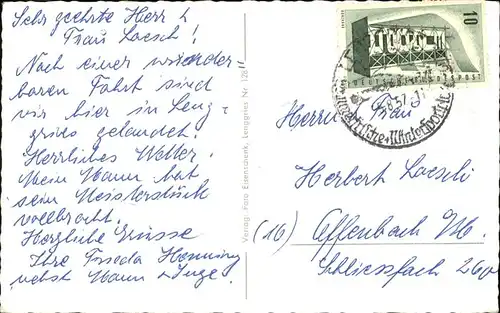 Sehr geehrte Herr &
Frau Loesch!
Nach einer wunder
baren Fahrt sind
wir hier in Leng-
gries gelandet.
Herrliches Wetter.
Mein Mann hat
sein Meisterstück
vollbracht.
Herzliche Grüsse
Ihre Frieda Henning
nebst Mann & Inge.
Verlag: Foto Eisenschenk, Lenggries Nr. 126
10
DEUTSCHE BUNDESPOST
Herrn Frau
Herbert Loesch
(16) Offenbach M.
Schliessfach 260